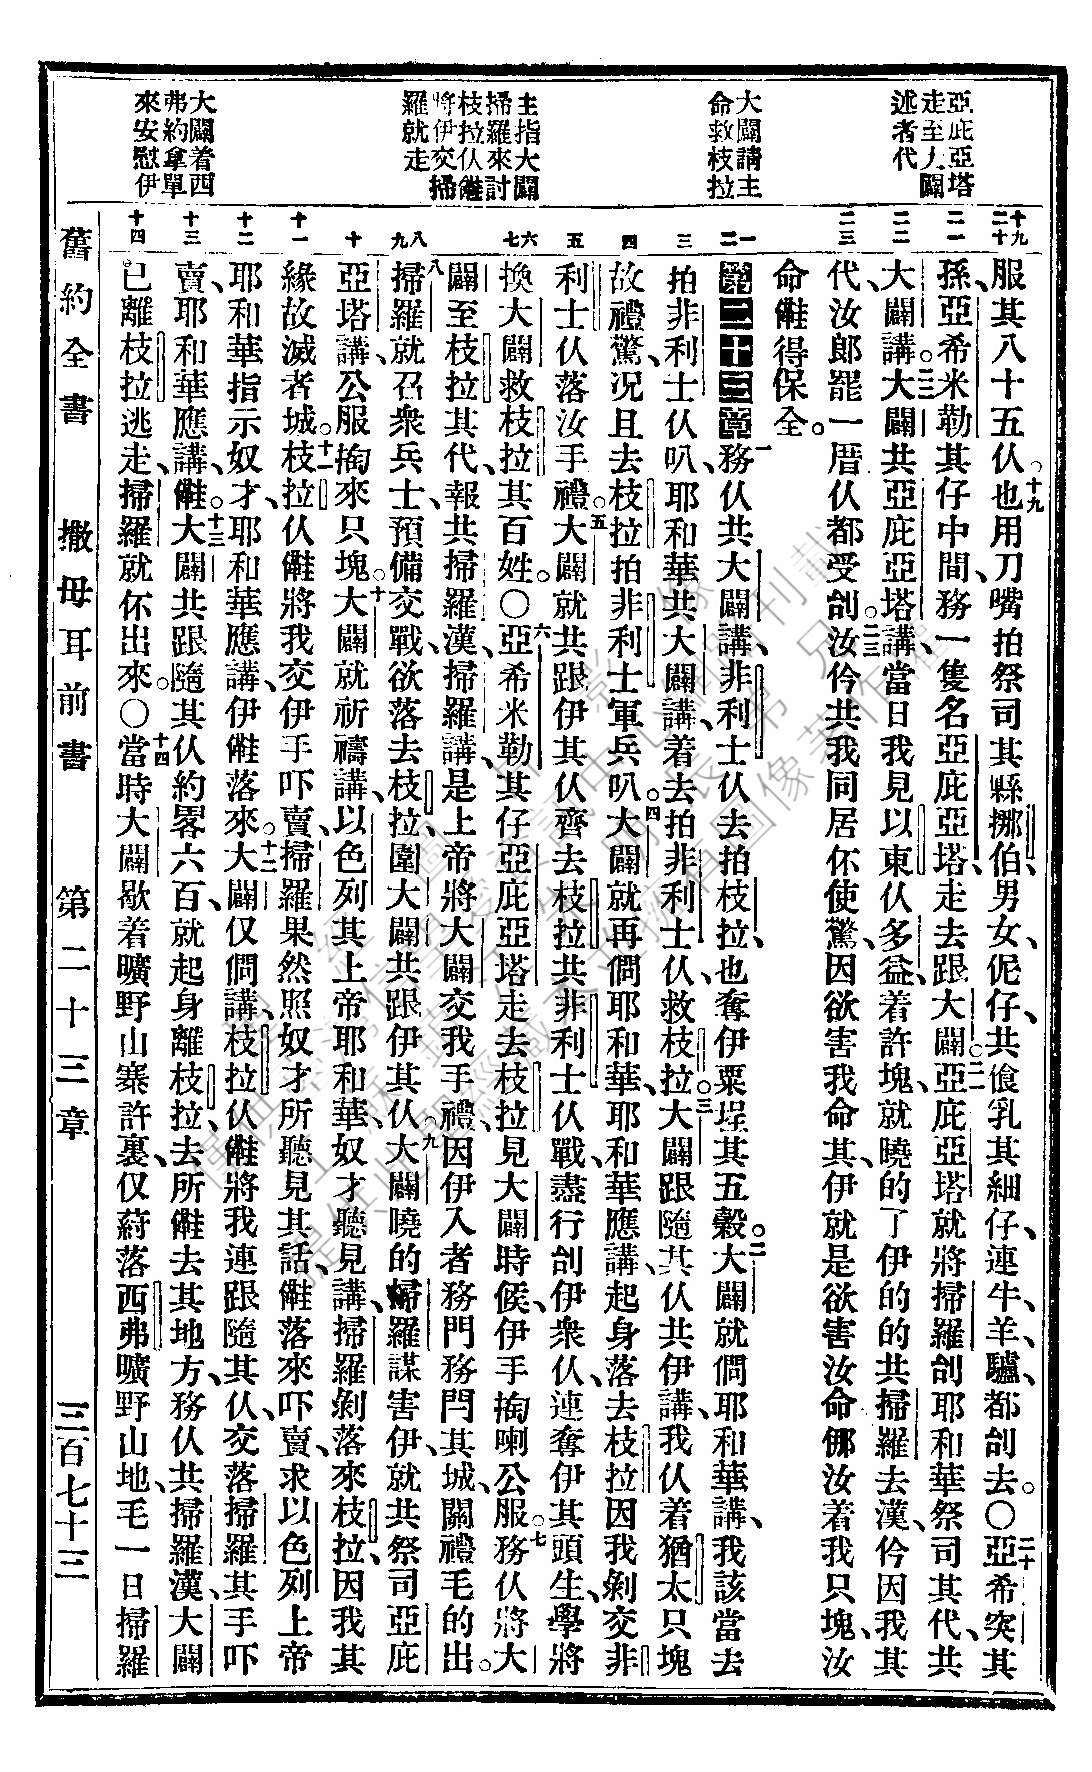 亞庇亞塔
走至大闢
述者代
大闢請主
命救枝拉
主指大闢
掃羅來討
枝拉伩㑚
將伊交掃
羅就走
大闢着西
弗約拿單
來安慰伊
服其八十五伩。也用刀嘴拍祭司其縣挪伯、男女、伲仔、共食乳其細仔、連牛、羊、驢、都刣去。〇亞希突其
孫、亞希米勒其仔中間、務一隻名亞庇亞塔、走去跟大闢。亞庇亞塔就將掃羅刣耶和華祭司其代、共
大闢講。大闢共亞庇亞塔講、當日我見以東伩多益、着許塊、就曉的了伊的的共掃羅去漢、伶因我其
代、汝郎罷一厝伩都受刣。汝伶共我同居伓使驚、因欲害我命其、伊就是欲害汝命、挪汝着我只塊、汝
命㑚得保全。
第二十三章務伩共大闢講、非利士伩去拍枝拉、也奪伊粟埕其五穀。大闢就問耶和華講、我該當去
拍非利士伩叭、耶和華共大闢講、着去拍非利士伩、救枝拉。大闢跟隨其伩共伊講、我伩着猶太只塊
故禮驚、況且去枝拉拍非利士軍兵叭。大闢就再問耶和華、耶和華應講、起身落去枝拉、因我剝交非
利士伩落汝手禮。大闢就共跟伊其伩齊去枝拉、共非利士伩戰、盡行刣伊衆伩、連奪伊其頭生、學將
換大闢救枝拉其百姓。〇亞希米勒其仔亞庇亞塔走去枝拉見大闢時候、伊手掏喇公服。務伩將大
闢至枝拉其代、報共掃羅漢、掃羅講、是上帝將大闢交我手禮、因伊入者務門務閂其城、關禮毛的出。
掃羅就召衆兵士、預備交戰、欲落去枝拉、圍大闢共跟伊其伩。大闢曉的掃羅謀害伊、就共祭司亞庇
亞塔講、公服掏來只塊。大闢就祈禱講、以色列其上帝耶和華、奴才聽見講、掃羅剝落來枝拉、因我其
緣故滅者城。枝拉伩㑚將我交伊手吓賣、掃羅果然照奴才所聽見其話、㑚落來吓賣、求以色列上帝
耶和華、指示奴才、耶和華應講、伊㑚落來。大闢仅問講、枝拉伩㑚將我連跟隨其伩、交落掃羅其手吓
賣、耶和華應講、㑚。大闢共跟隨其伩約畧六百、就起身離枝拉、去所㑚去其地方、務伩共掃羅漢、大闢
已離枝拉逃走、掃羅就伓出來。〇當時大闢歇着曠野山寨許裏、仅葤落西弗曠野山地、毛一日掃羅
舊約全書 撒母耳前書 第二十三章 三百七十三